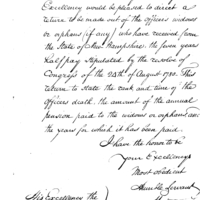 Excellency would be pleased to direct a
return to be made out of the officers widows
or orphans (if any) who have received from
the State of New Hampshire the seven years
half pay stipulated by the resolve of
Congress of the 24th of August 1780. This
return to state the rank and time of the
officers death, the amount of the annual
pension paid to the widows or orphans and
the years for which it has been paid.
I have the honor to be
your Excellencys
most obedient
humble servant
His Excellency the